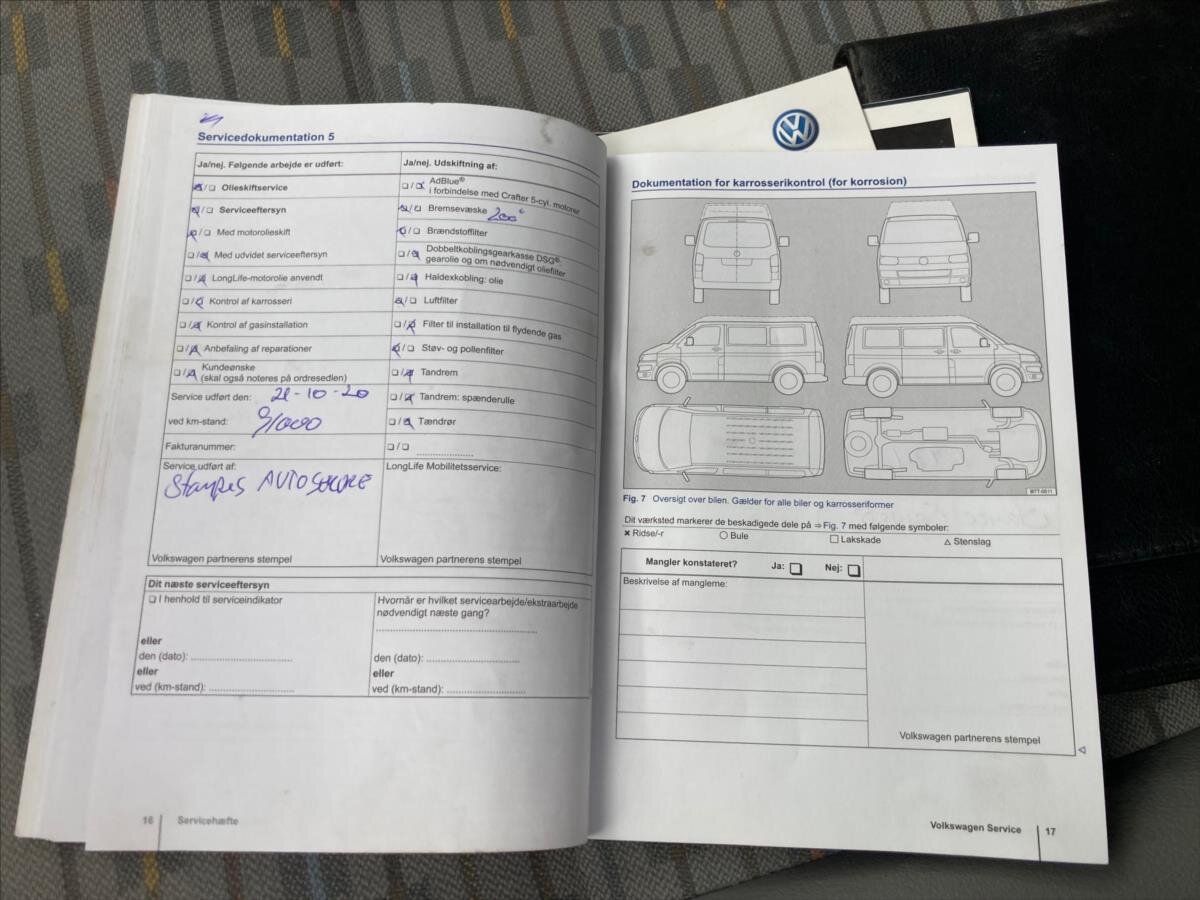 Servicedokumentation 5
Ja/nej. Følgende arbejde er udført:
Olieskiftservice
Serviceeftersyn
Med motorolieskift
Med udvidet serviceeftersyn
LongLife-motorolie anvendt
Kontrol af karrosseri
Kontrol af gasinstallation
Anbefaling af reparationer
Kundeønske
(skal også noteres på ordresedlen)
Service udført den: 21-10-20
ved km-stand: 91000
Fakturanummer:
Service udført af:
AUTO
Volkswagen partnerens stempel
Ja/nej. Udskiftning af:
AdBlue®
i forbindelse med Crafter 5-cyl. motorer
Bremsevæske 200°
Brændstoffilter
Dobbeltkoblingsgearkasse DSG®:
gearolie og om nødvendigt oliefilter
Haldexkobling: olie
Luftfilter
Filter til installation til flydende gas
Støv- og pollenfilter
Tandrem
Tandrem: spænderulle
Tændrør
LongLife Mobilitetsservice:
Volkswagen partnerens stempel
Dit næste serviceeftersyn
I henhold til serviceindikator
eller
den (dato):
eller
ved (km-stand):
Hvornår er hvilket servicearbejde/ekstraarbejde
nødvendigt næste gang?
den (dato):
eller
ved (km-stand):
16 Servicehæfte
VW
Dokumentation for karrosserikontrol (for korrosion)
B7T-0011
Fig. 7 Oversigt over bilen. Gælder for alle biler og karrosseriformer
Dit værksted markerer de beskadigede dele på ⇒ Fig. 7 med følgende symboler:
× Ridse/-r ○ Bule □ Lakskade △ Stenslag
Mangler konstateret? Ja: Nej:
Beskrivelse af manglerne:
Volkswagen partnerens stempel
Volkswagen Service 17